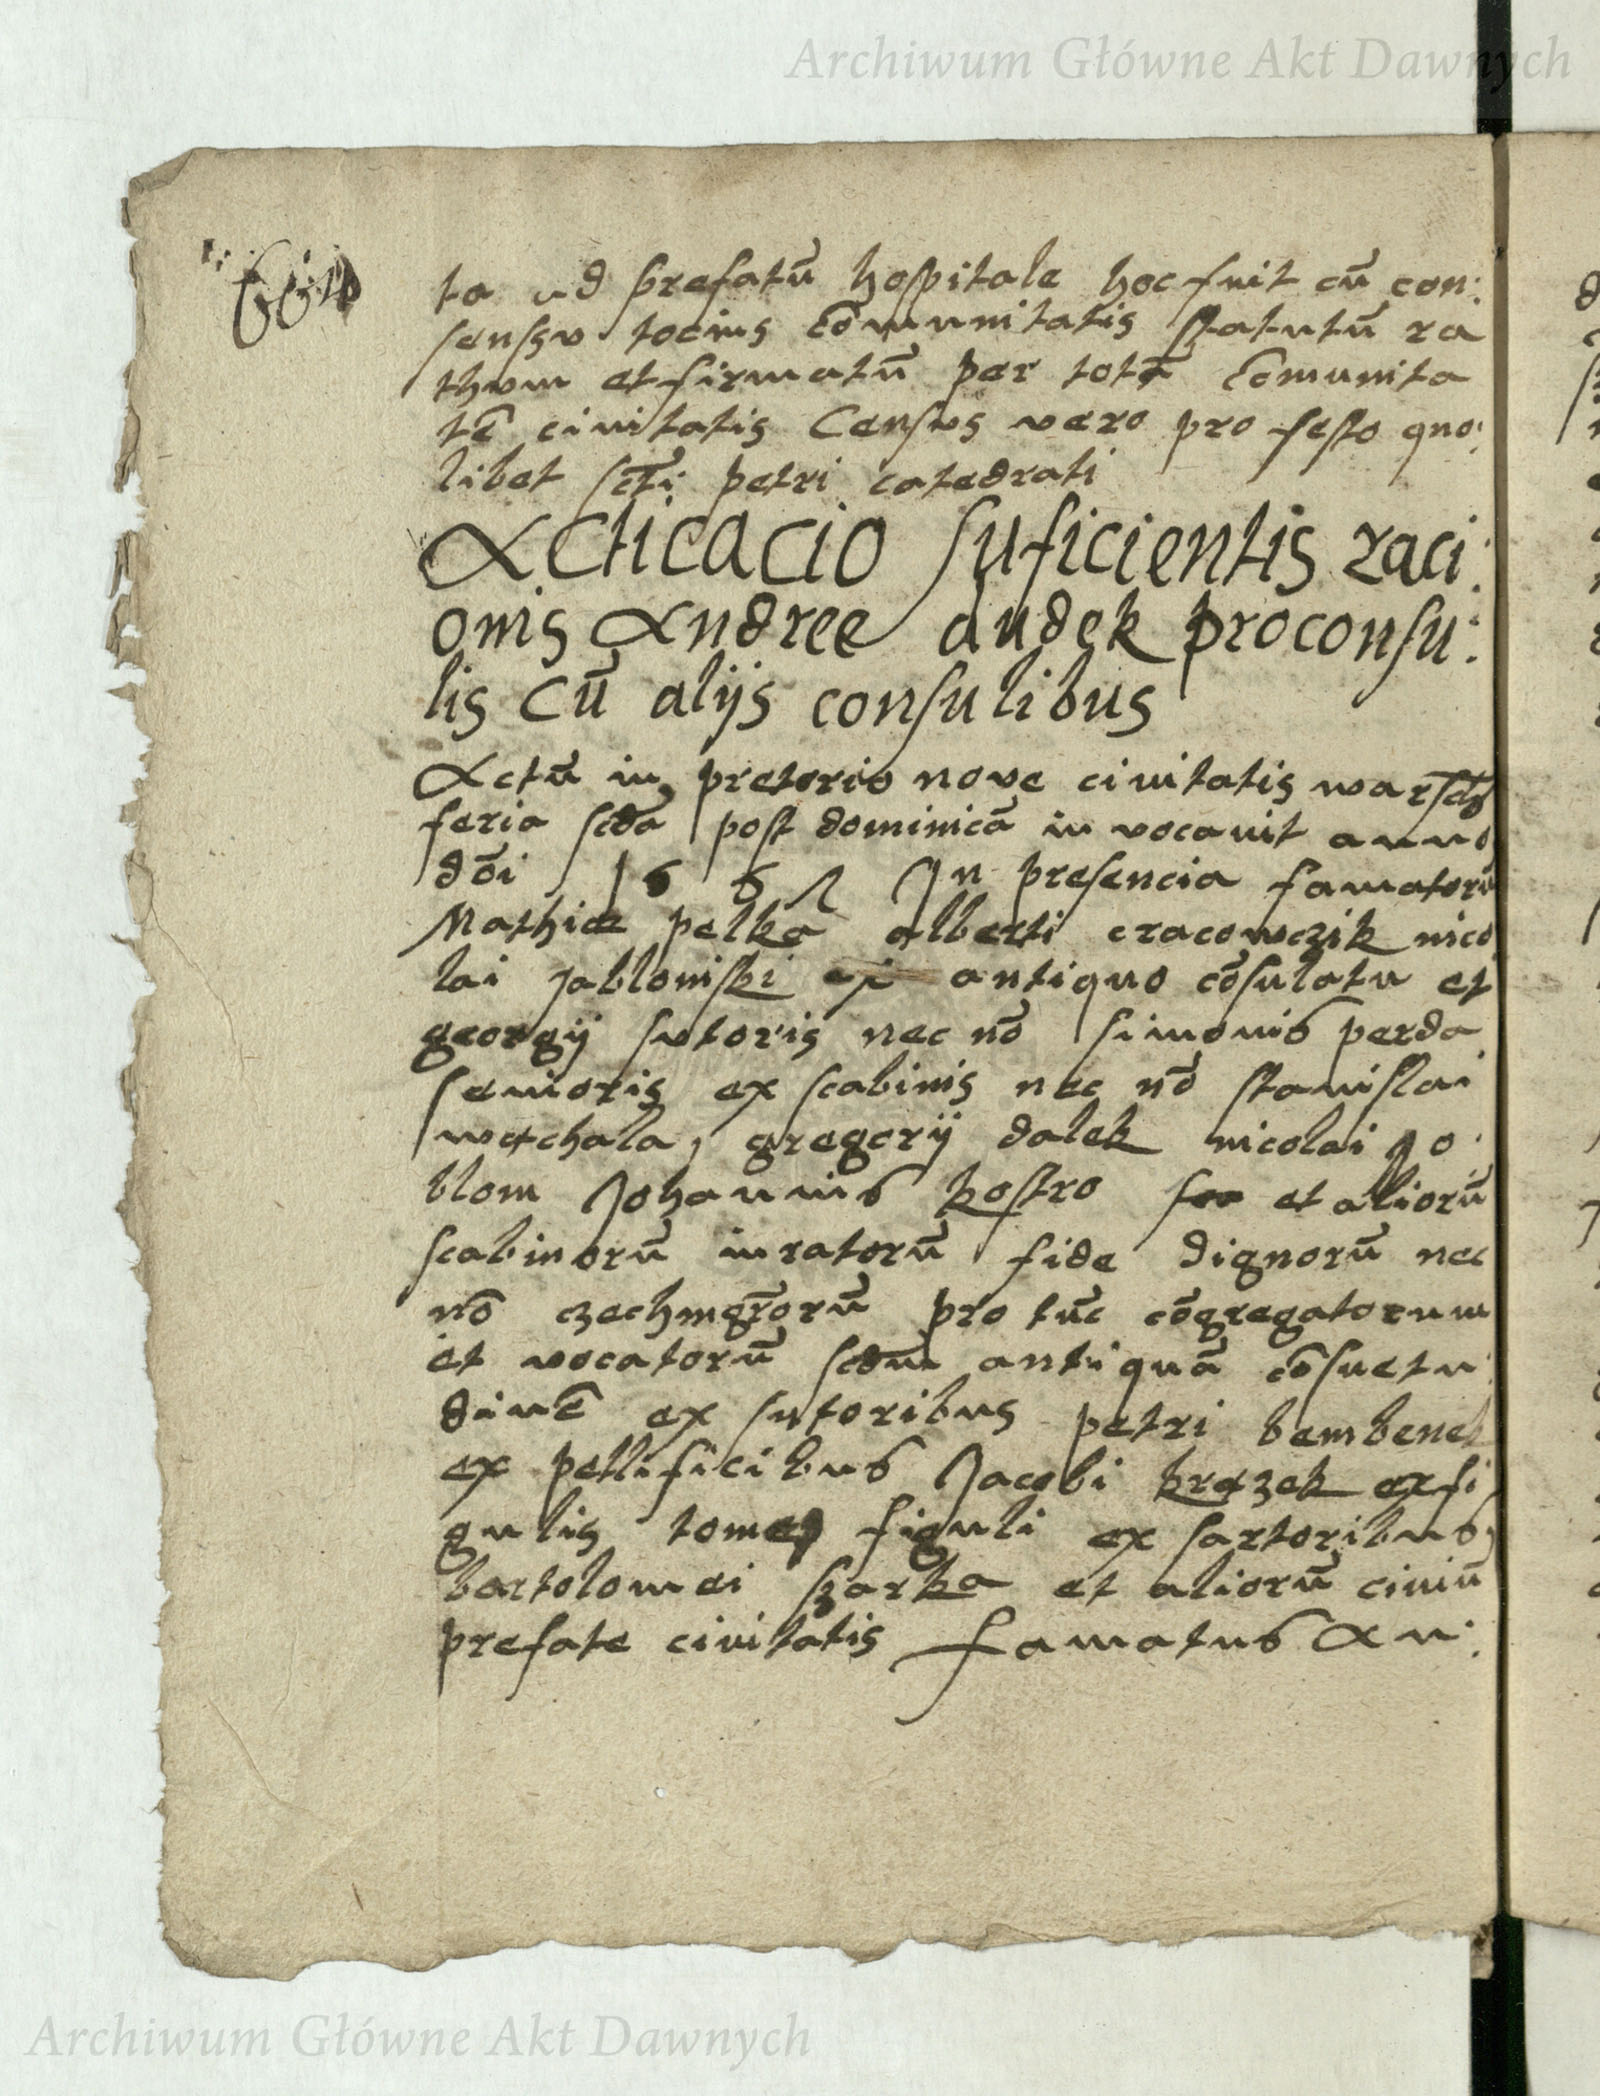 Archiwum Główne Akt Dawnych
ta ad prefatū hospitale hoc fuit cū con:
sensv tocius cōmunitatis statutū ra
thvm et firmatū per totā cōmunita
tē ciuitatis Census vero pro festo quo:
libet scti petri catedrati
Acticacio suficientis raci:
onis Andree dudek proconsu:
lis cū alijs consulibus
Actū in pretorio nove ciuitatis
feria scda post dominicā in vocavit anno
dōi In presencia famatorū
Mathiæ pelka alberti cracowczik nico
lai Jabloniski ex antiquo cōsulatu et
georgij sutoris nec nō simonis perda
senioris ex scabinis nec nō stanislai
wachala, gregorij dalek nicolai Jo:
blom Johannis kostro et aliorū
scabinorū iuratorū fide dignorū nec
nō czechmgrorū pro tūc cōgregatorum
et vocatorū scdm antiquā cōsuetu:
dinē ex sutoribus petri bembenek
ex pellificibus Jacobi krazek ex fi
gulis tome figuli ex sartoribus
bartolomei szarka et aliorū ciuiū
prefate ciuitatis famatus An:
Archiwum Główne Akt Dawnych